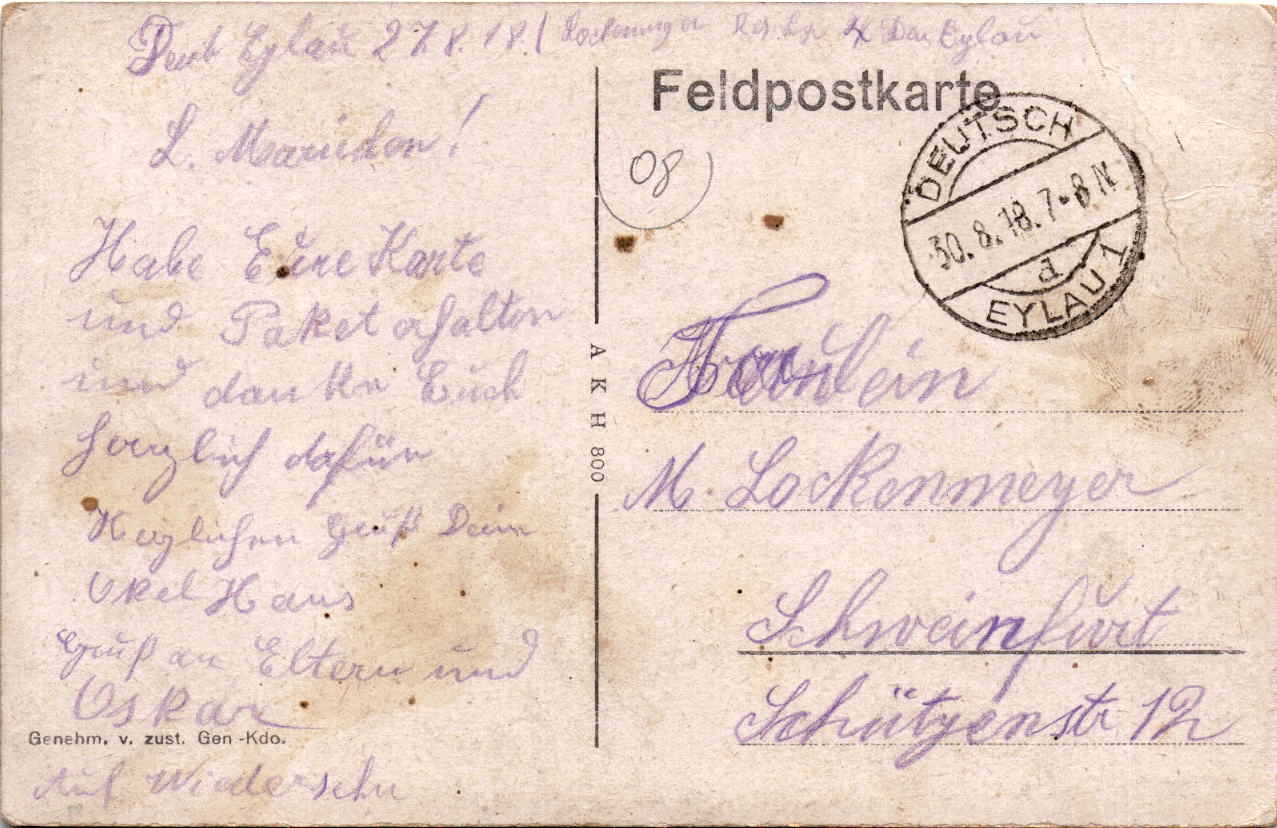 Deut Eylau 27.8.18. / Lockenmeyer Deu Eylau
L. Mariechen!
Habe Eure Karte
und Paket erhalten
und danke Euch
herzlich dafür
Herzlichen Gruß Dein
Okel Hans
Gruß an Eltern und
Oskar
Genehm. v. zust. Gen.-Kdo.
Auf Wiedersehn
A K H 800
Feldpostkarte
08
DEUTSCH
30.8.18.7-8 N
d
EYLAU 1
Fräulein
M. Lockenmeyer
Schweinfurt
Schützenstr 12